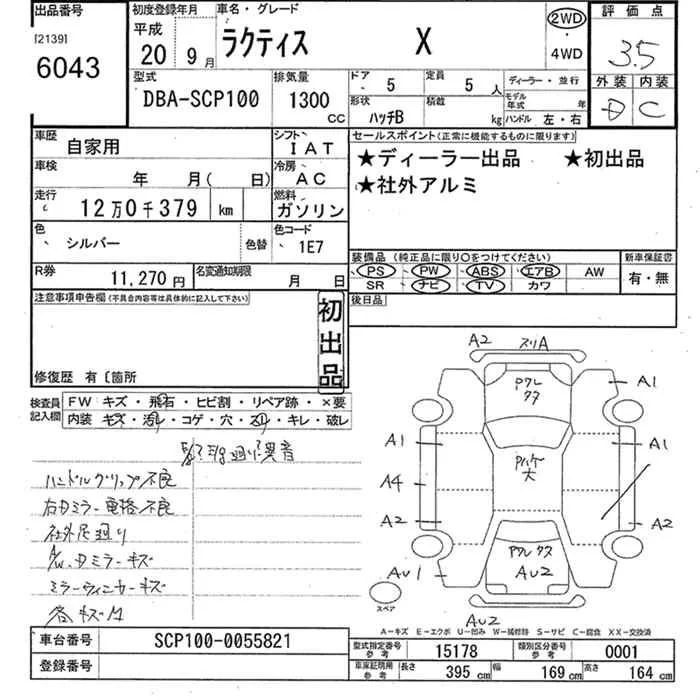 出品番号
[2139]
6043
初度登録年月
平成
20 9月
車名・グレード
ラクティス X
2WD
・
4WD
評価点
3.5
外装 内装
D C
型式
DBA-SCP100
排気量
1300
CC
ドア 5
定員 5人
形状 ハッチB
積載 kg
ディーラー・並行
モデル年式 年
ハンドル 左・右
車歴 自家用
シフト IAT
車検 年 月( 日)
冷房 AC
走行 12万0千379 km
燃料 ガソリン
色 シルバー 色替
色コード 1E7
R券 11,270円
名変通知期限 月 日
セールスポイント(正常に機能するものに限ります)
★ディーラー出品 ★初出品
★社外アルミ
装備品 (純正品に限り○をつけてください)
PS PW ABS エアB AW
SR ナビ TV カワ
新車保証書
有・無
後日品
注意事項申告欄(不具合内容等は具体的に記入して下さい)
初出品
修復歴 有〔箇所
検査員記入欄
FW キズ・飛石・ヒビ割・リペア跡・×要
内装 キズ・汚れ・コゲ・穴・スレ・キレ・破レ
廻り異音
ハンドルグリップ不良
右Dミラー電格不良
社外足廻り
A/W、Dミラーキズ
ミラーウィンカーキズ
各キズ
A2 スリA
Pクレ
クス
A1
A1
Pハゲ
大
A1
A4
A2
A2
Pクレ クス
AU2
AU1
スペア
AU2
A-キズ E-エクボ U-凹み W-補修跡 S-サビ C-腐食 XX-交換済
車台番号 SCP100-0055821
登録番号
型式指定番号 参考 15178
類別区分番号 参考 0001
車庫証明用 参考
長さ 395 cm
幅 169 cm
高さ 164 cm